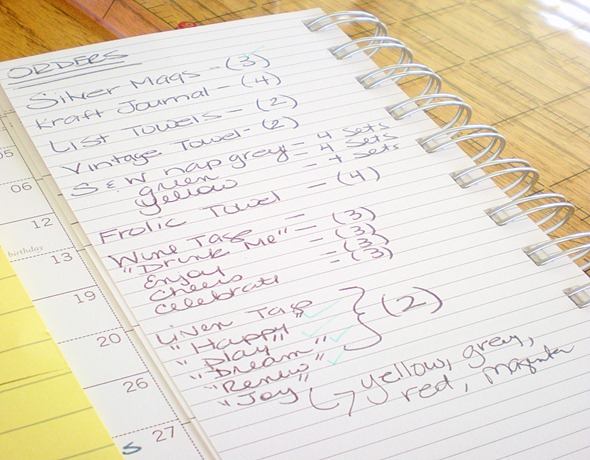 ORDERS
Silver Mags - (3)
Kraft Journal - (4)
List Towels - (2)
Vintage Towel - (2)
S & W nap grey = 4 sets
green = 4 sets
yellow - 4 sets
Frolic Towel - (4)
Wine Tags
"Drink Me" = (3)
Enjoy - (3)
Cheers - (3)
Celebrate = (3)
Linen Tags
"Happy"
"Play" (2)
"Dream"
"Renew"
"Joy" yellow, grey,
red, magenta
05
06
12
birthday
13
19
20
26
27
S